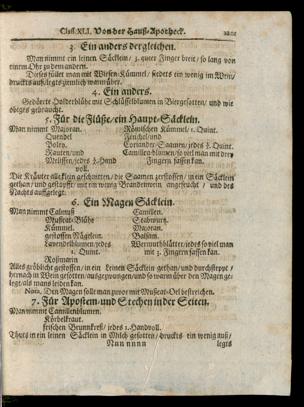 Class. XLI. Von der Hauß-Apotheck.
3. Ein anders dergleichen.
Man nimmt ein leinen Säcklein / 3. queer Finger breit / so lang von
einem Ohr zu dem andern.
Dieses füllet man mit Wiesen-Kümmel / senetzs ein wenig im Wein /
druckts auß / legts ziemlich warm über.
4. Ein anders.
Gedörrte Holderblühe mit Schlüsselblumen in Bier gesotten / und wie
obiges gebraucht.
5. Für die Flüße / ein Haupt-Säcklein.
Man nimmt Majoran.
Quendel
Poley.
Rauten / und
Melissen / jedes ½. Hand
voll.
Römischen Kümmel / 1. Quint.
Fenchel / und
Coriander-Saamen / jedes ½. Quint.
Camillenblumen / so viel man mit drey
Fingern fassen kan.
Die Kräuter kläcklein geschnitten / die Saamen gestossen / in ein Säcklein
gethan / und gestäppt / mit ein wenig Brandenwein angefeucht / und des
Nachts auffgelegt.
6. Ein Magen Säcklein.
Man nimmt Calmuß
Muscat-Blühe
Kümmel.
gestossen Nägelein.
Lavendelblumen / jedes
1. Quint.
Rosmarin
Camillen.
Stabwurtz.
Majoran.
Balsam.
Wermuthblätter / jedes so viel man
mit 3. Fingern fassen kan.
Alles gröblicht gestossen / in ein leinen Säcklein gethan / und durchsteppt /
hernach in Wein gesotten / ausgezwungen / und so warm über den Magen ge-
legt / als mans leiden kan.
Nota. Den Magen sollt man zuvor mit Muscat-Oel bestreichen.
7. Für Apostem- und Stechen in der Seiten.
Man nimmt Camillenblumen.
Körbelkraut.
frischen Brunnkreß / jedes 1. Handvoll.
Thuts in ein leinen Säcklein in Milch gesotten / druckts ein wenig auß /
Nnn nnnn
legts